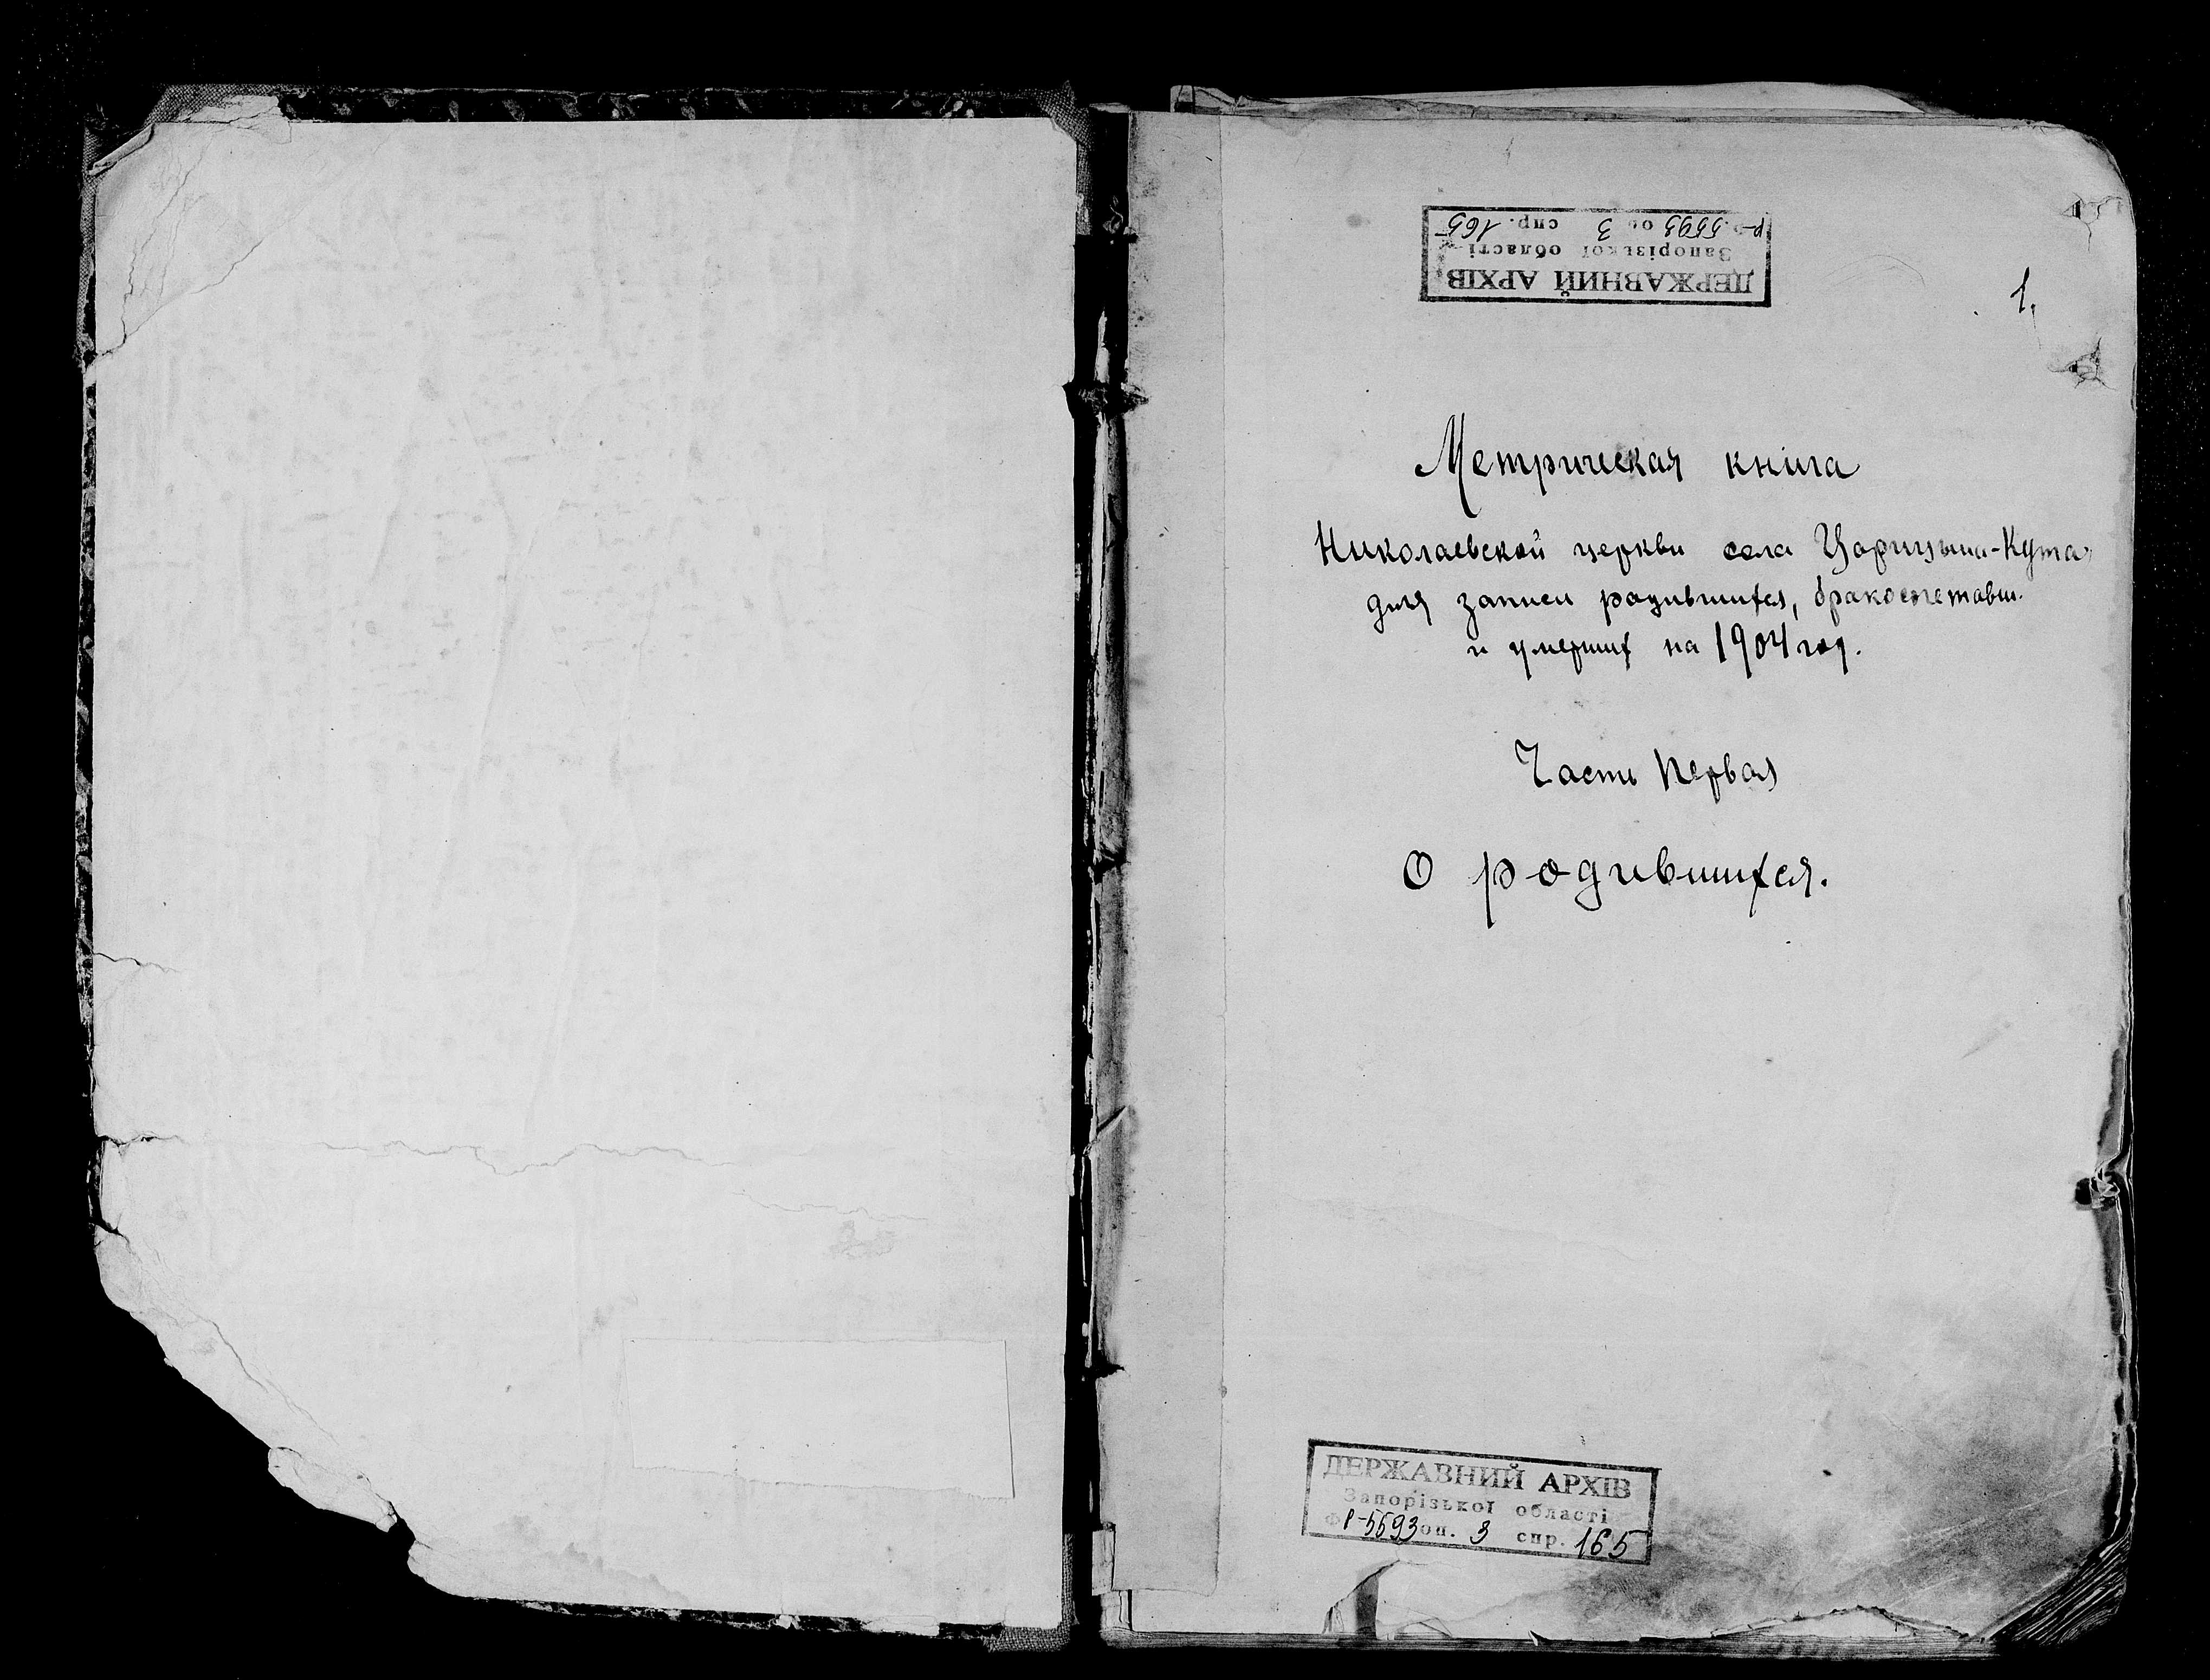 ДЕРЖАВНИЙ АРХІВ
Запорізької області
р-5593 оп. 3 спр. 165
1.
Метрическая книга
Николаевской церкви села Царицына-Кута,
для записи родившихся, бракосочетавш.
и умерших на 1904 год.
Часть Первая
О родившихся.
ДЕРЖАВНИЙ АРХІВ
Запорізької області
Ф Р-5593 оп. 3 спр. 165